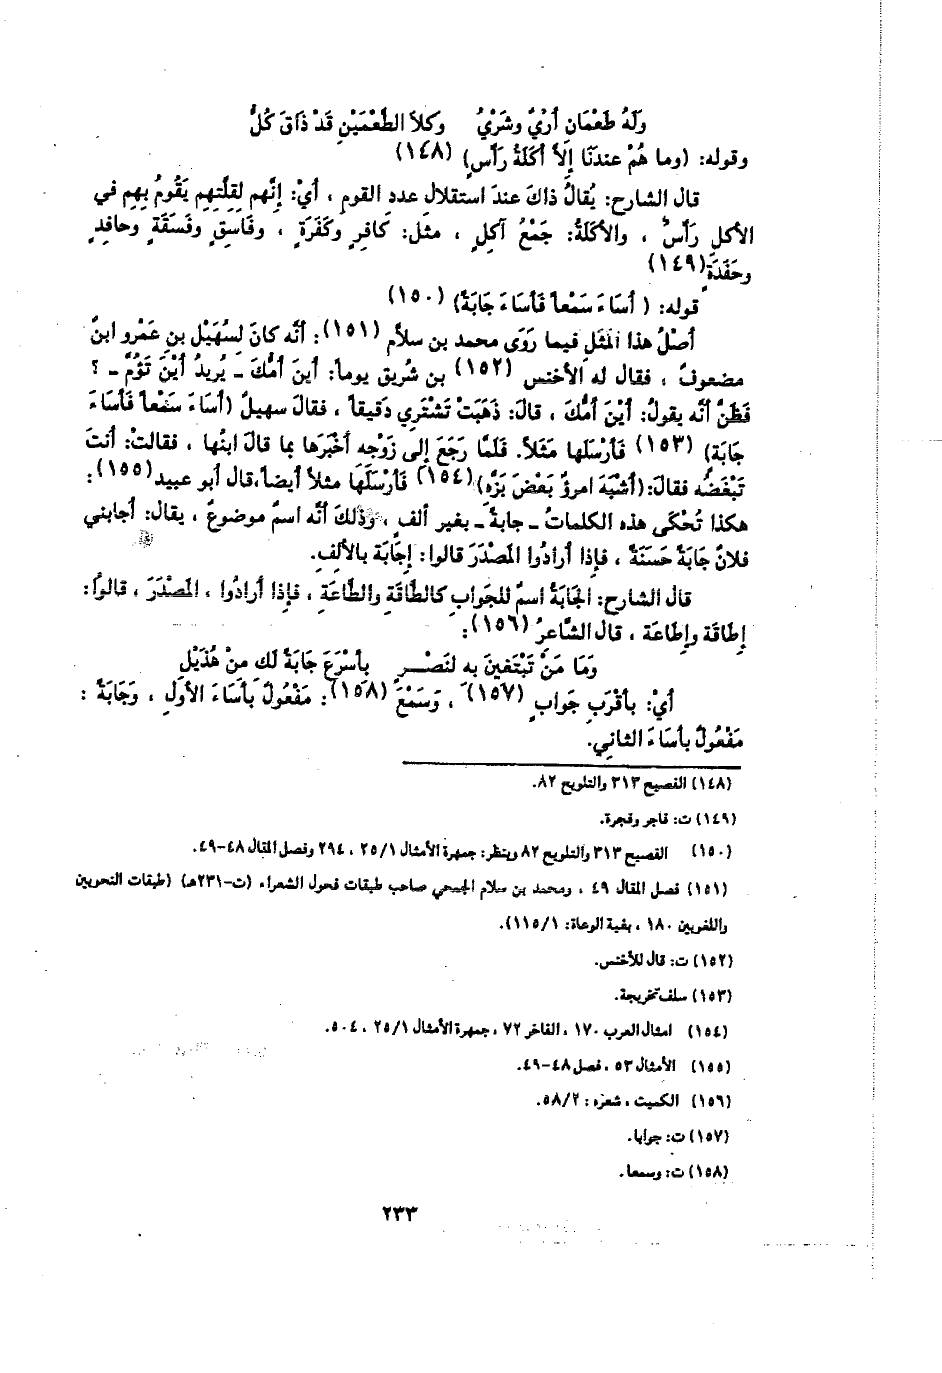 وَلَهُ طَعْمَانِ أَرْيٌ وشَرْيٌ وكلاَ الطَّعْمَيْنِ قَدْ ذَاقَ كُلُّ
وقوله: (وما هُمْ عندَنَا إِلاَّ أَكَلَةُ رَأسٍ) (١٤٨)
قال الشارح: يُقالُ ذاكَ عندَ استقلالِ عددِ القومِ ، أيْ: إنَّهم لقِلَّتِهِم يَقُومُ بِهِم في
الأكلِ رَأسٌ ، والأكَلَةُ: جَمْعُ آكلٍ ، مثل: كافرٍ وكَفَرَةٍ ، وفَاسِقٍ وفَسَقَةٍ وحافِدٍ
وحَفَدَةٍ(١٤٩)
قوله: (أسَاءَ سَمْعاً فَأسَاءَ جَابَةً) (١٥٠)
أصْلُ هذا المَثَلِ فيما رَوَى محمد بن سلاّم (١٥١): أنَّه كانَ لسُهَيْلِ بنِ عَمْرو ابنٌ
مضعوفٌ ، فقال له الأخنس (١٥٢) بن شريق يوماً: أينَ أمُّكَ ـ يُريدُ أيْنَ تَؤُمُّ ـ ؟
فَظَنَّ أنَّه يقولُ: أيْنَ أمُّكَ ، قالَ: ذَهَبَتْ تَشْتَرِي دَقيقاً ، فقالَ سهيلٌ (أسَاءَ سَمْعاً فَأسَاءَ
جَابَةً) (١٥٣) فَأرْسَلها مَثَلاً. فَلَمَّا رَجَعَ إلى زَوْجِهِ أخْبَرَها بما قالَ ابنُها ، فقالتْ: أنتَ
تَبْغَضُهُ فقالَ:(أشْبَهَ امرؤٌ بَعْضَ بَزِّهِ)(١٥٤) فَأرْسَلَهَا مثلاً أيضاً،قال أبو عبيد (١٥٥):
هكذا تُحْكَى هذه الكلماتُ ـ جابةً ـ بغير ألفٍ ، وَذلكَ أنَّه اسمٌ موضوعٌ ، يقال: أجابني
فلانٌ جَابَةً حَسَنَةً ، فإذا أرادُوا المَصْدَرَ قالوا: إجَابَة بالألفِ.
قال الشارح: الجَابَةُ اسمٌ للجَوابِ كالطَّاقَةِ والطَّاعَةِ ، فإذا أرادُوا ، المَصْدَرَ ، قالُوا:
إطَاقَة وإطاعَة ، قال الشَّاعرُ (١٥٦):
وَمَا مَنْ تَبْتَغينَ به لنَصْـــرٍ بأسْرَعَ جَابَةً لَكِ مِنْ هُذَيْلِ
أيْ: بأقْرَبِ جَوابٍ (١٥٧) ، وَسَمْعَ (١٥٨): مَفْعُولٌ بأسَاءَ الأولِ ، وَجَابَةً :
مَفْعُولٌ بأسَاءَ الثاني.
(١٤٨) الفصيح ٣١٣ والتلويح ٨٢.
(١٤٩) ت: فاجر وفجرة.
(١٥٠) الفصيح ٣١٣ والتلويح ٨٢ وينظر: جمهرة الأمثال ٢٥/١ ، ٢٩٤ وفصل المقال ٤٨-٤٩.
(١٥١) فصل المقال ٤٩ ، ومحمد بن سلام الجمحي صاحب طبقات فحول الشعراء (ت-٢٣١هـ) (طبقات النحويين
واللغويين ١٨٠ ، بغية الوعاة: ١١٥/١).
(١٥٢) ت: قال للأخنس.
(١٥٣) سلف تخريجة.
(١٥٤) امثال العرب ١٧٠ ، الفاخر ٧٢ ، جمهرة الأمثال ٢٥/١ ، ٥٠٤.
(١٥٥) الأمثال ٥٣ ، فصل ٤٨-٤٩.
(١٥٦) الكميت ، شعره : ٥٨/٢.
(١٥٧) ت: جوابا.
(١٥٨) ت: وسمعا.
٢٣٣